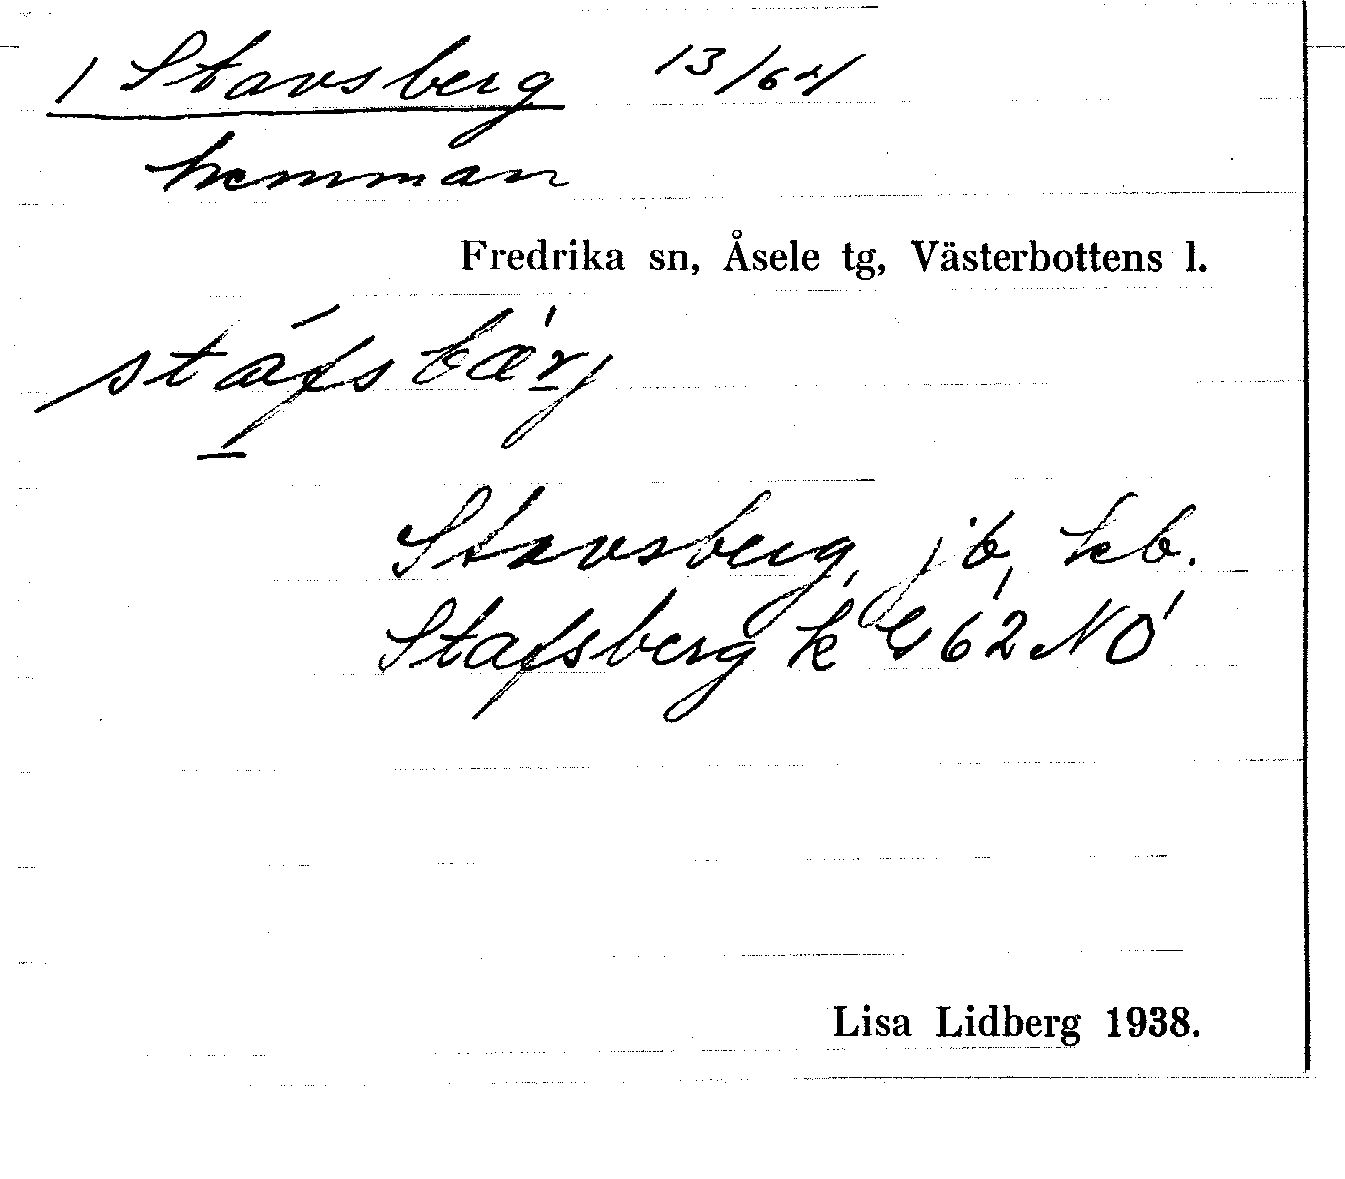 1 Stavsberg 13/64
hemman
Fredrika sn, Åsele tg, Västerbottens l.
stáfsbæ̀rj
Stavsberg, jb, kb.
Stafsberg k G 62 NO
Lisa Lidberg 1938.